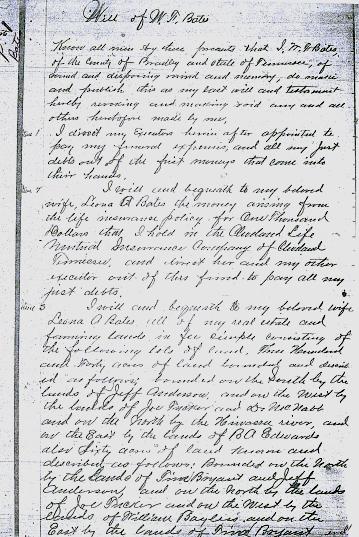 Will of W. F. Bates
Know all men by these presents that I, W. F. Bates
of the County of Bradley and state of Tennessee, of
sound and disposing mind and memory, do make
and publish this as my last will and testament
hereby revoking and making void any and all
others heretofore made by me.
Item 1 I direct my Executors herein after appointed to
pay my funeral expenses and all my just
debts out of the first moneys that come into
their hands.
I will and bequeath to my beloved
wife, Leona A Bates the money arising from
the life insurance policy for One Thousand
Dollars that I hold in the Cleveland Life
Mutual Insurance Company of Cleveland
Tennessee, and direct her and my other
executor out of this fund to pay all my
just debts.
Item 3 I will and bequeath to my beloved wife
Leona A Bates all of my real estate and
farming lands in fee simple consisting of
the following lots of land. Three Hundred
and Forty acres of land bounded and describ
ed as follows; bounded on the South by the
lands of Jeff Anderson, and on the West by
the lands of Joe Tucker and Dr McNabb
and on the North by the Hiwassee river, and
on the East by the lands of B A Edwards
also Sixty acres of land known and
described as follows: Bounded on the North
by the lands of Tim Bryant and Jeff
Anderson, and on the North by the lands
of Joe Tucker and on the West by the
lands of William Bayless and on the
East by the lands of Tim Bryant and